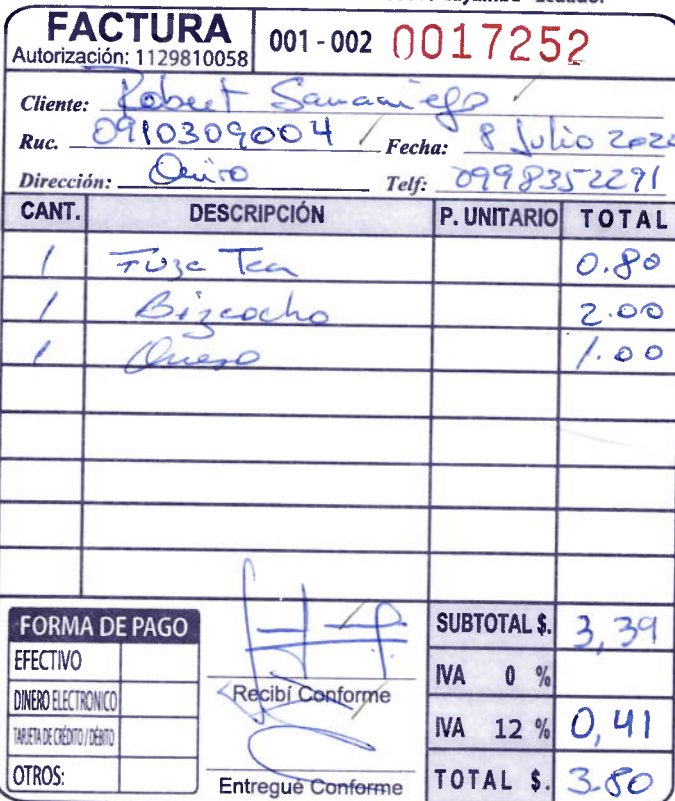 Cayambe - Ecuador
FACTURA
Autorización: 1129810058
001 - 002 0017252
Cliente: Robert Samaniego
Ruc. 0910309004 Fecha: 8 Julio 202
Dirección: Quito Telf: 0998352291
CANT. DESCRIPCIÓN P. UNITARIO TOTAL
1 Fuze Tea 0.80
1 Bizcocho 2.00
1 Queso 1.00
FORMA DE PAGO
EFECTIVO
DINERO ELECTRONICO
TARJETA DE CRÉDITO / DÉBITO
OTROS:
Recibí Conforme
Entregué Conforme
SUBTOTAL $. 3,39
IVA 0 %
IVA 12 % 0,41
TOTAL $. 3.80